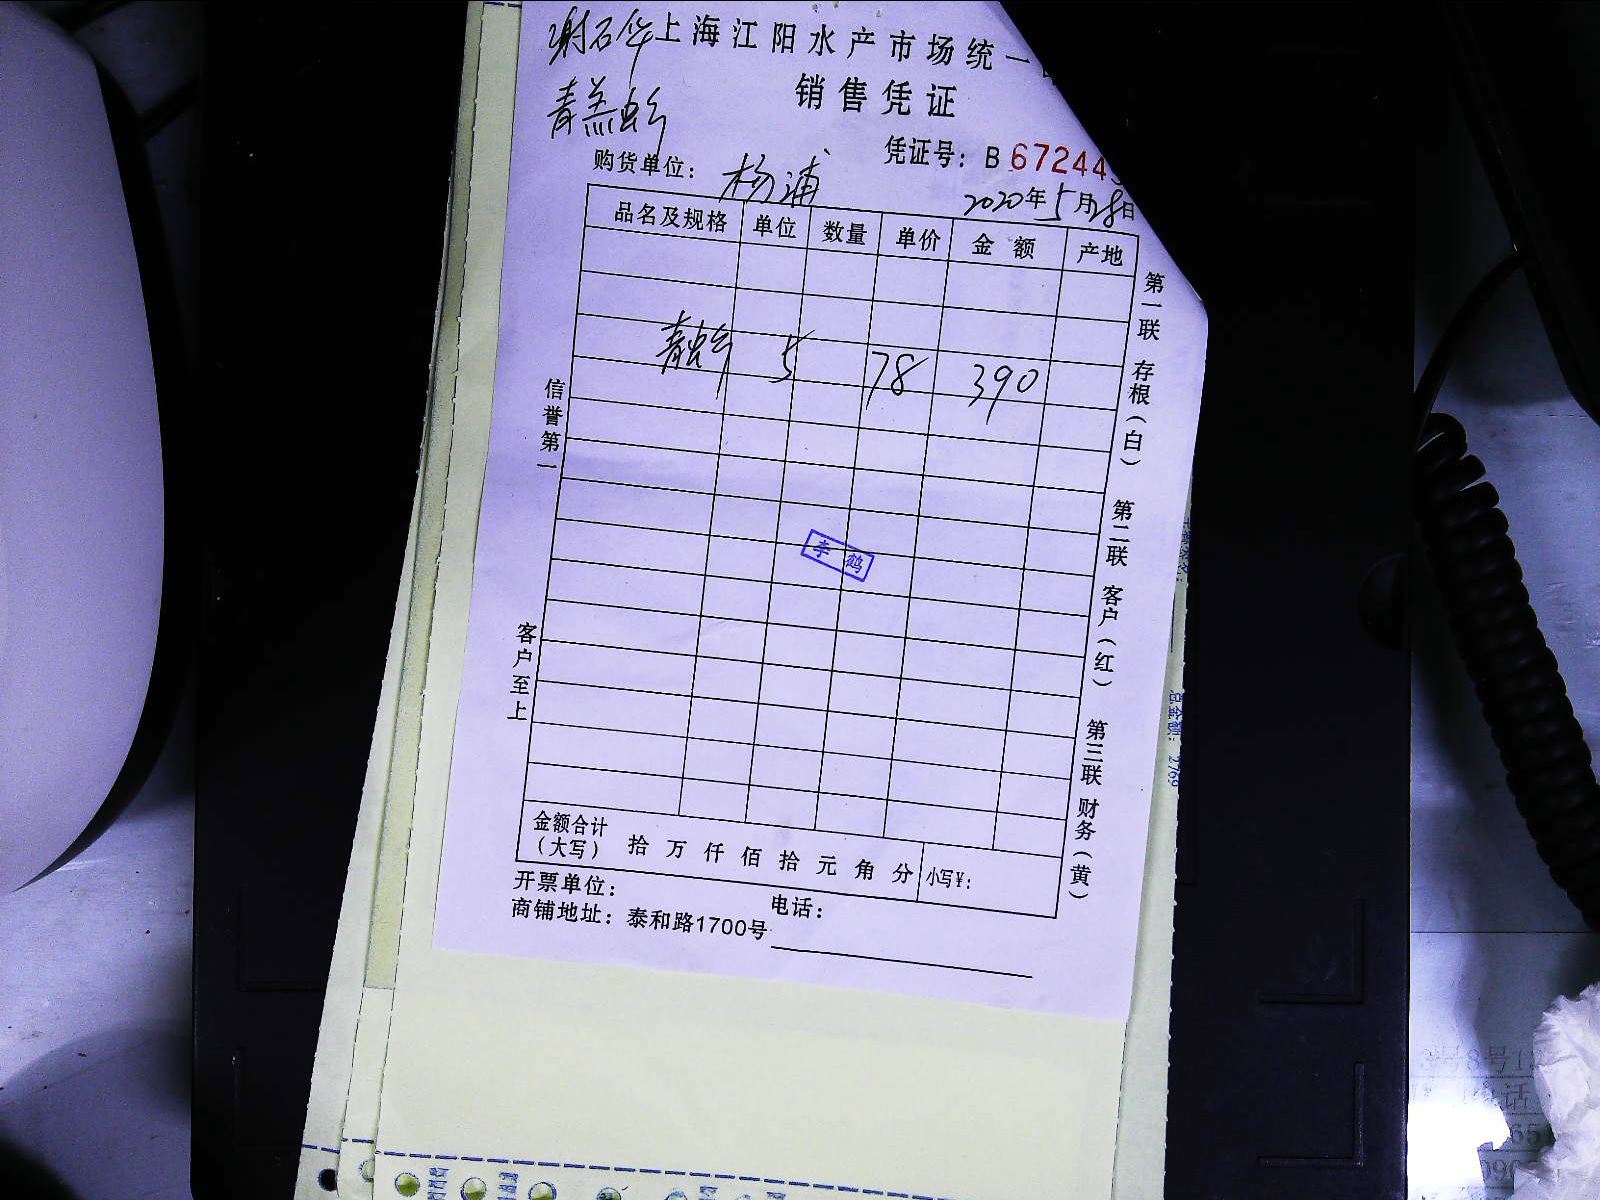 谢石华
上海江阳水产市场统一
销售凭证
青羔蟹
凭证号: B 67244
购货单位: 杨浦
2020年5月28日
品名及规格 单位 数量 单价 金 额 产地
青蟹 5 78 390
李鹤
金额合计
(大写) 拾 万 仟 佰 拾 元 角 分 小写¥:
开票单位: 电话:
商铺地址: 泰和路1700号
信誉第一
客户至上
第一联 存根(白) 第二联 客户(红) 第三联 财务(黄)
总金额: 2769